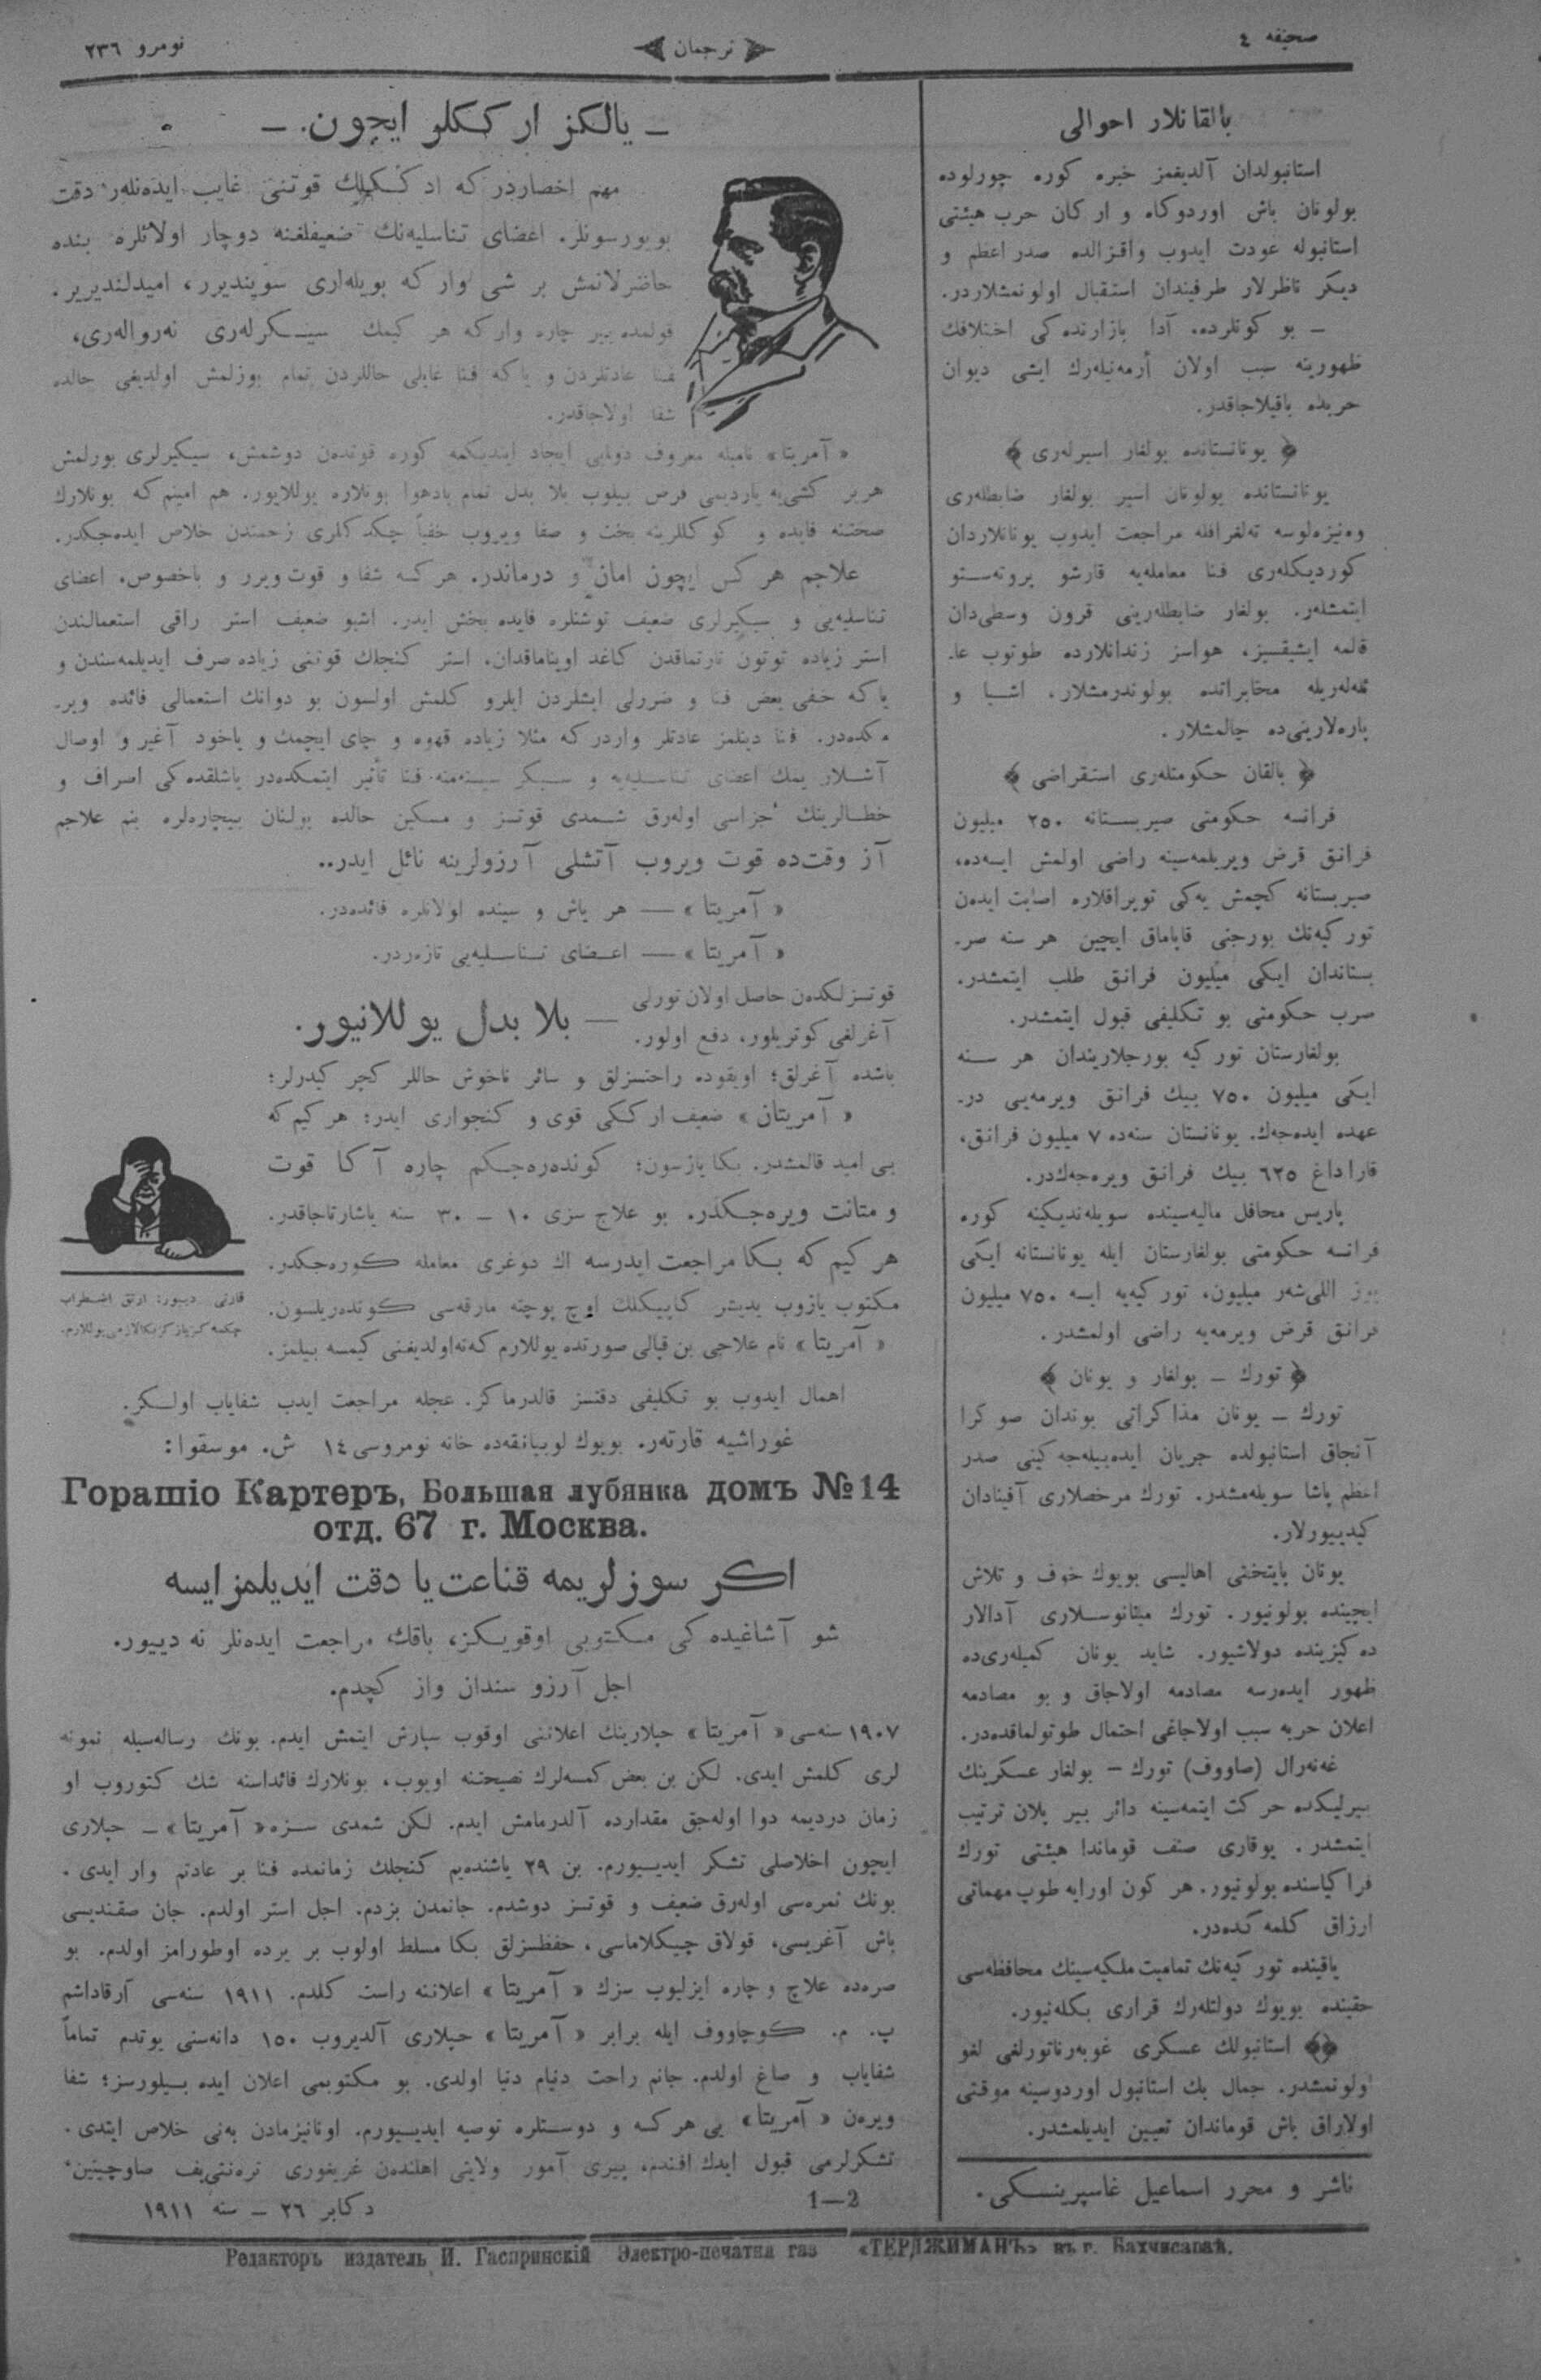 صحيفه ٤
ترجمان
نومرو ٢٣٦
بالقانلار احوالی
استانبولدان آلديغمز خبره کوره چورلوده
بولونان باش اوردوکاه و ارکان حرب هيئتی
استانبوله عودت ايدوب واقزالده صدر اعظم و
ديکر ناظرلار طرفيندان استقبال اولونمشلاردر.
ـ بو کونلرده، آدا بازارنده کی اختلافك
ظهورينه سبب اولان أرمه نيله رك ايشی ديوان
حربده باقيلاجاقدر.
﴿ يونانستانده بولغار اسيرلەری ﴾
يونانستانده بولونان اسير بولغار ضابطلەری
وەنيزەلوسه تەلغرافله مراجعت ايدوب يونانلاردان
کوردیکلەری فنا معامله يه قارشو پروتەستو
ايتمشلەر. بولغار ضابطلەرينی قرون وسطی دان
قالمه ايشيقسز، هواسز زندانلارده طوتوب عا۔
ئلەلەريله مخابراتده بولوندرمشلار، اشيا و
پارەلارينی ده چالمشلار.
﴿ بالقان حکومتلەری استقراضی ﴾
فرانسه حکومتی صيربستانه ٢٥٠ ميليون
فرانق قرض ويريلمەسينه راضی اولمش ايسەده،
صيربستانه کچمش يەکی توپراقلاره اصابت ايدەن
تورکيەنك بورجنی قاپاماق ايچين هر سنه صر۔
بستاندان ايکی ميليون فرانق طلب ايتمشدر.
صرب حکومتی بو تکليفی قبول ايتمشدر.
بولغارستان تورکيه بورجلاريندان هر سنه
ايکی ميليون ٧٥٠ بيك فرانق ويرمەيی در۔
عهده ايدەجەك. يونانستان سنەده ٧ ميليون فرانق،
قاراداغ ٦٢٥ بيك فرانق ويرەجەكدر.
پاريس محافل ماليەسينده سويلەنديکينه کوره
فرانسه حکومتی بولغارستان ايله يونانستانه ايکی
يوز اللی شەر ميليون، تورکيەيه ايسه ٧٥٠ ميليون
فرانق قرض ويرمەيه راضی اولمشدر.
﴿ تورك ـ بولغار و يونان ﴾
تورك ـ يونان مذاکراتی بوندان صوکرا
آنجاق استانبولده جريان ايدەبيلەجەکينی صدر
اعظم پاشا سويلەمشدر. تورك مرخصلاری آفينادان
کيدييورلار.
يونان پايتختی اهاليسی بويوك خوف و تلاش
ايچينده بولونيور. تورك مينانوسلاری آدالار
دەکيزينده دولاشيور. شايد يونان کميلەری ده
ظهور ايدەرسه مصادمه اولاجاق و بو مصادمه
اعلان حربه سبب اولاجاغی احتمال طوتولماقدەدر.
غەنەرال (صاووف) تورك ـ بولغار عسکرينك
بيرليکده حرکت ايتمەسينه دائر بير پلان ترتيب
ايتمشدر. يوقاری صنف قوماندا هيئتی تورك
فراکياسنده بولونيور. هر کون اورايه طوپ مهماتی
ارزاق کلمەکدەدر.
ياقينده تورکيەنك تماميت ملکيەسينك محافظەسی
حقينده بويوك دولتلەرك قراری بکلەنيور.
استانبولك عسکری غوبەرناتورلغی لغو
اولونمشدر. جمال بك استانبول اوردوسينه موقتی
اولاراق باش قوماندان تعيين ايديلمشدر.
ناشر و محرر اسماعيل غاسپرينسکی.
ـ يالکز ارککلر ايچون. ـ
مهم اخصاردر که ارککلك قوتنی غايب ايدەنلەر دقت
بويورسونلر. اعضای تناسليەنك ضعيفلغنه دوچار اولانلره بنده
حاضرلانمش بر شی وار که بويلەلری سويندیرر، اميدلنديرير.
قولمده بير چاره وار که هر کيمك سيکرلەری نەروالەری،
فنا عادتلردن و ياکه فنا عايلی حاللردن تمام بوزلمش اولديغی حالده
شفا اولاجاقدر.
« آمريتا » ناميله معروف دوايی ايجاد ايتديکمه کوره قوتدەن دوشمش، سيکيرلری بورلمش
هر بر کشی يه يارديمی فرض بيلوب بلا بدل تمام بادهوا بونلاره يوللايور. هم امينم که بونلارك
صحتنه فايده و کوکللرينه بخت و صفا ويروب خفيا چکدکلری زحمتدن خلاص ايدەجکدر.
علاجم هر کس ايچون امان و درماندر. هر کسه شفا و قوت ويرر و باخصوص، اعضای
تناسليەيی و سيکيرلری ضعيف توشنلره فايده بخش ايدر. اشبو ضعيف استر راقی استعمالندن
استر زياده توتون تارتماقدن کاغد اويناماقدان، استر کنجلك قوتنی زياده صرف ايديلمەسندن و
ياکه خفی بعض فنا و ضررلی ايشلردن ايلرو کلمش اولسون بو دوانك استعمالی فائده وير۔
مکدەدر. فنا دينلمز عادتلر واردر که مثلا زياده قهوه و چای ايچمك و ياخود آغير و اوصال
آشلار يمك اعضای تناسليەيه و سيکر سيستەمنه فنا تأثير ايتمکدەدر ياشلقدەکی اصراف و
خطالرينك جزاسی اولەرق شمدی قوتسز و مسکين حالده بولنان بيچارەلره بنم علاجم
آز وقت ده قوت ويروب آتشلی آرزولرينه نائل ايدر..
« آمريتا » — هر ياش و سينده اولانلره فائدەدر.
« آمريتا » — اعضای تناسليەيی تازەرەدر.
قوتسزلکدەن حاصل اولان تورلی
آغرلغی کوتريلور، دفع اولور.
— بلا بدل يوللانيور.
باشده آغرلق؛ اويقوده راحتسزلق و سائر ناخوش حاللر کچر کيدرلر؛
« آمريتان » ضعيف ارککی قوی و کنجواری ايدر: هر کيم که
بی اميد قالمشدر. بکا يازسون؛ کوندەرەجکم چاره آکا قوت
و متانت ويرەجکدر. بو علاج سزی ١٠ ـ ٣٠ سنه ياشارتاجاقدر.
هر کيم که بکا مراجعت ايدرسه اك دوغری معامله کورەجکدر.
مکتوب يازوب يديشر کاپيکلك اوچ پوچته مارقەسی کوندەريلسون.
« آمريتا » نام علاجی بن قپالی صورتده يوللارم که نه اولديغنی کيمسه بيلمز.
قارئی دييور: ارتق اضطراب
اهمال ايدوب بو تکليفی دقتسز قالدرماکز. عجله مراجعت ايدب شفاياب اولکز.
غوراشيه قارتەر. بويوك لوبيانقەده خانه نومروسی ١٤ ش. موسقوا:
Горашіо Картеръ, Большая лубянка домъ №14
отд. 67 г. Москва.
اکر سوزلريمه قناعت يا دقت ايديلمز ايسه
شو آشاغيدەکی مکتوبی اوقويکز، باقك، مراجعت ايدەنلر نه دييور.
اجل آرزوسندان واز کچدم.
١٩٠٧ سنەسی « آمريتا » حپلارينك اعلاننی اوقوب سپارش ايتمش ايدم. بونك رسالەسيله نمونه
لری کلمش ايدی. لکن بن بعض کمسەلرك نصيحتنه اويوب، بونلارك فائداسنه شك کتوروب او
زمان درديمه دوا اولەجق مقدارده آلدرمامش ايدم. لکن شمدی سزه « آمريتا » ـ حپلاری
ايچون اخلاصلی تشکر ايدييورم. بن ٢٩ ياشندەيم کنجلك زمانمده فنا بر عادتم وار ايدی.
بونك ثمرەسی اولەرق ضعيف و قوتسز دوشدم. جانمدن بزدم. اجل استر اولدم. جان صقنديسی
باش آغريسی، قولاق چيکلاماسی، حفظسزلق بکا مسلط اولوب بر يرده اوطورامز اولدم. بو
صرەده علاج و چاره ايزليوب سزك « آمريتا » اعلاننه راست کلدم. ١٩١١ سنەسی آرقاداشم
پ. م. کوچاووف ايله برابر « آمريتا » حپلاری آلديروب ١٥٠ دانەسنی يوتدم تماماً
شفاياب و صاغ اولدم. جانم راحت دنيام دنيا اولدی. بو مکتوبمی اعلان ايده بيلورسز؛ شفا
ويرەن « آمريتا » يی هر کسه و دوستلره توصيه ايدييورم. اونانيزمادن بەنی خلاص ايتدی.
تشکرلرمی قبول ايدك افندم، بيری آمور ولايتی اهلندەن غريغوری تەرەنتی يف صاوچينين
دکابر ٢٦ ـ سنه ١٩١١
1—2
Редакторъ издатель И. Гаспринскій Электро-печатня газ «ТЕРДЖИМАНЪ» въ г. Бахчисараѣ.